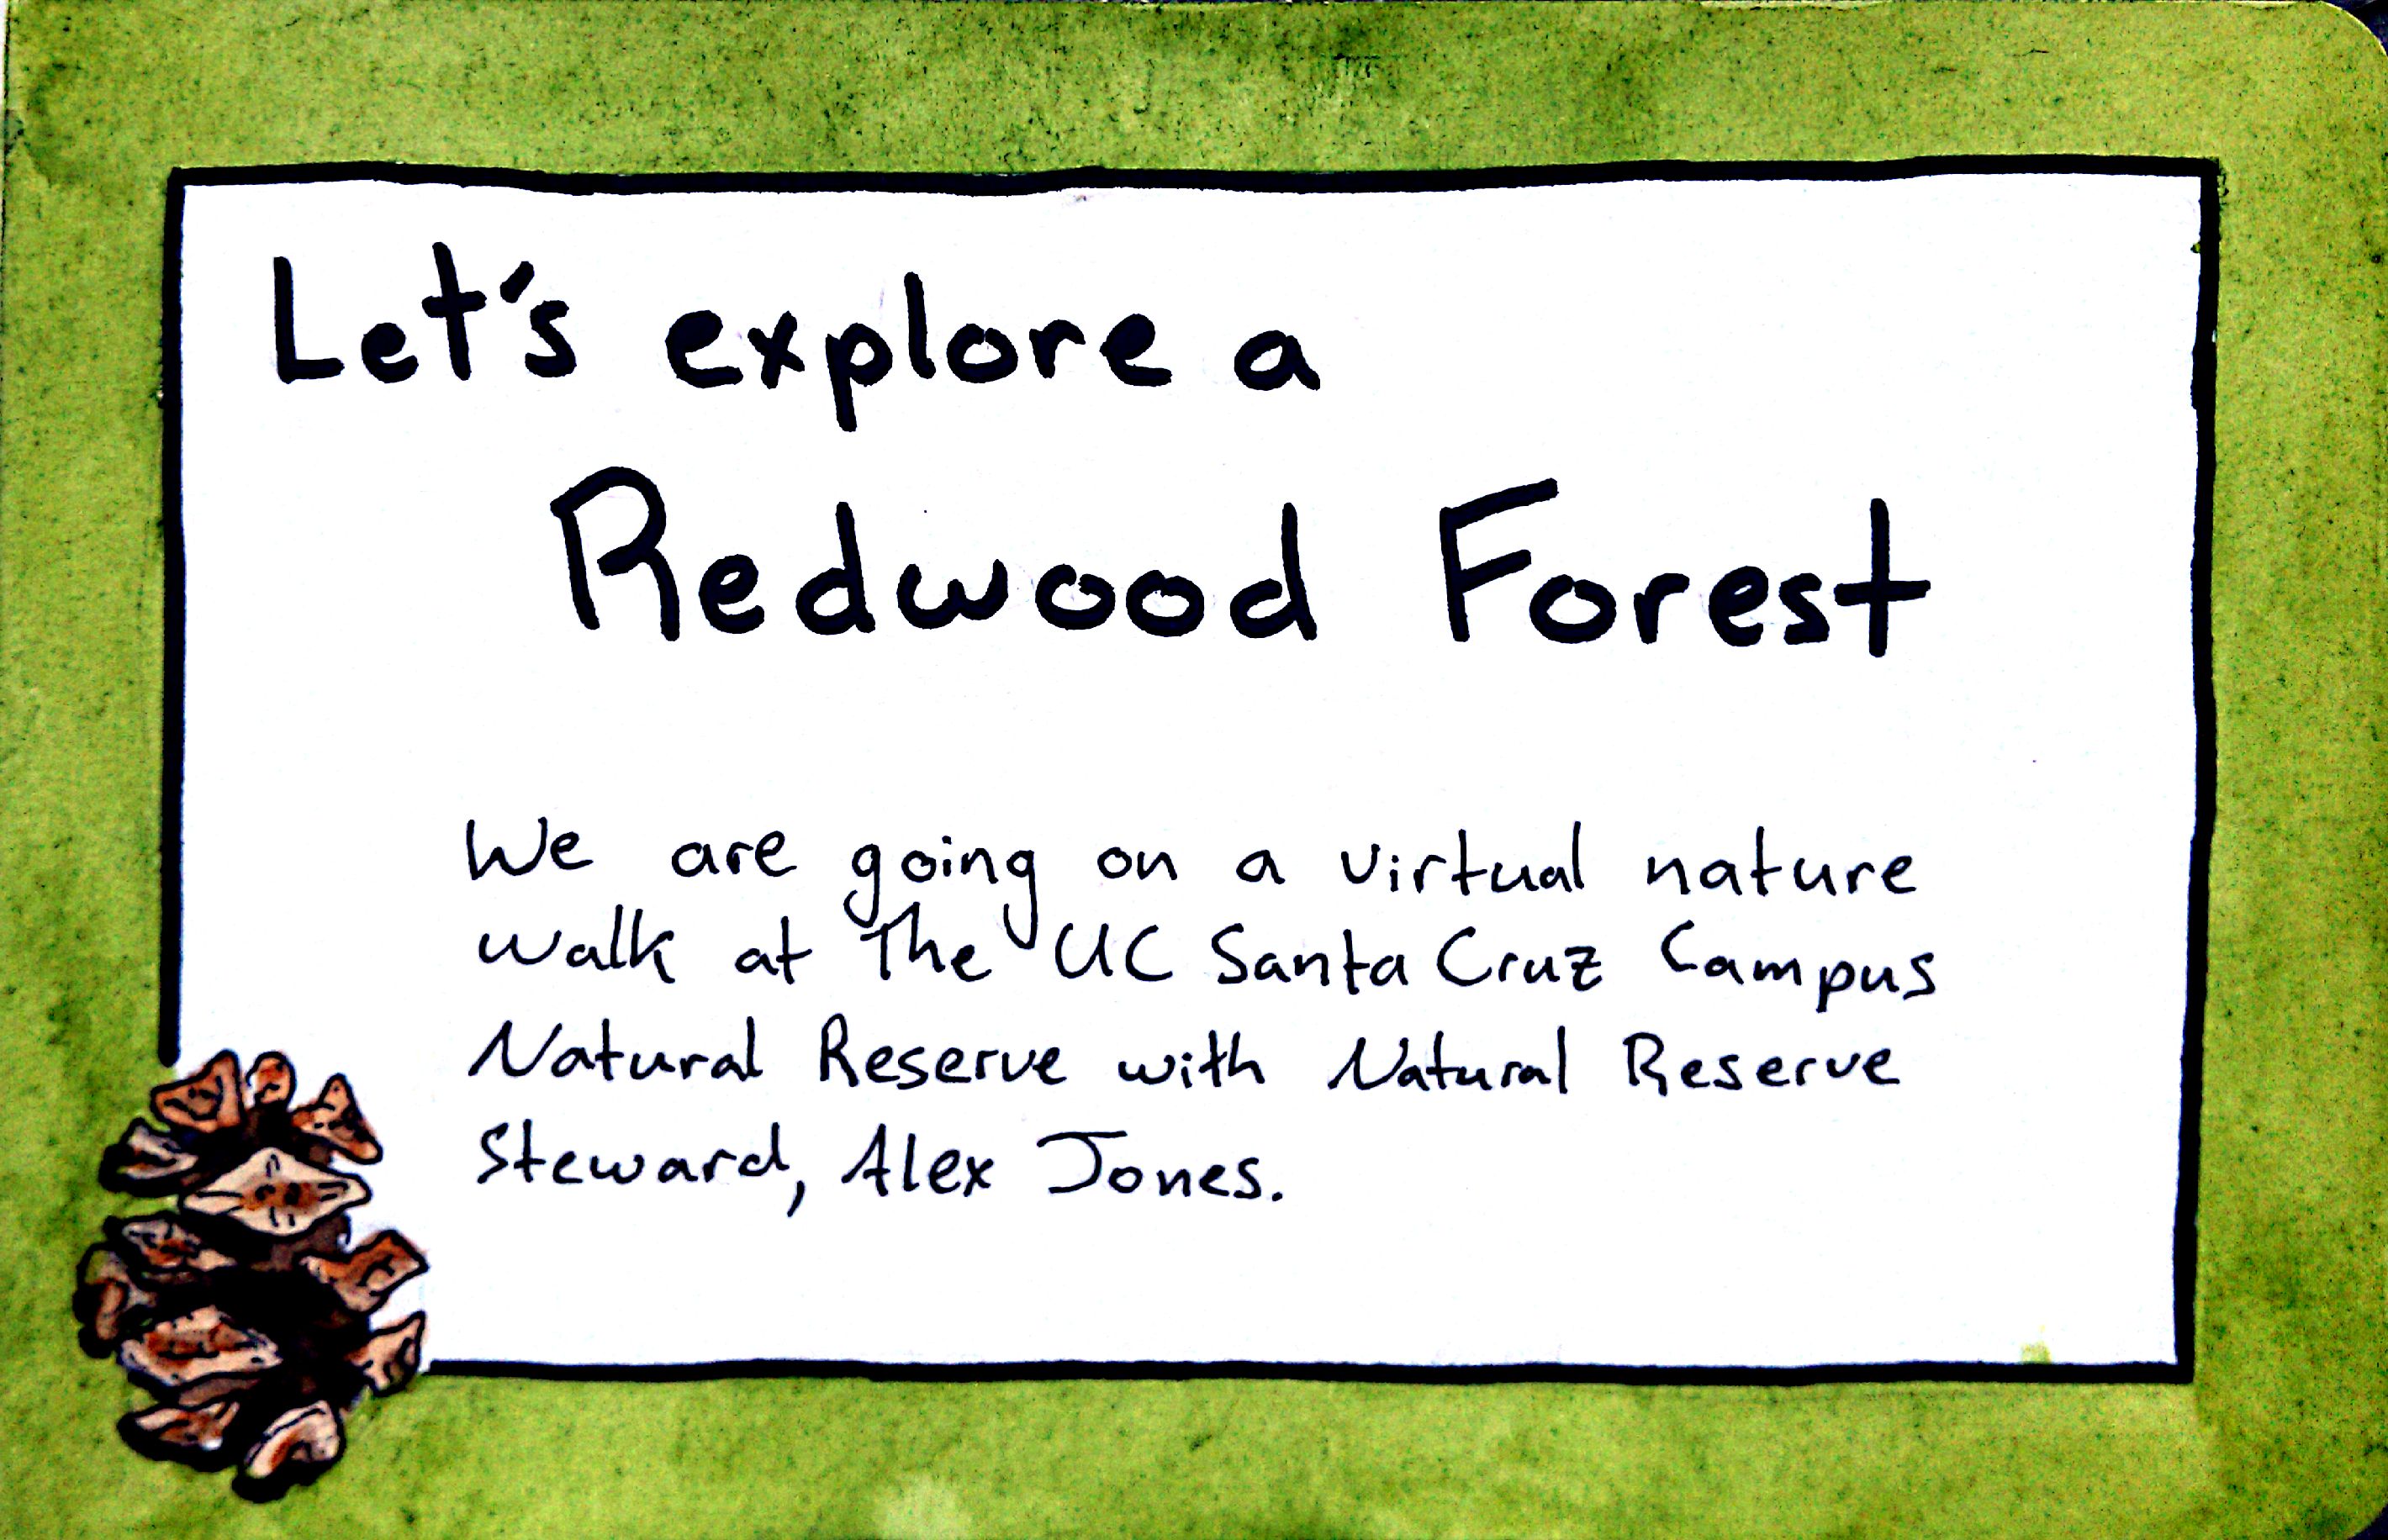 Let's explore a
Redwood Forest
We are going on a virtual nature
walk at The UC Santa Cruz Campus
Natural Reserve with Natural Reserve
Steward, Alex Jones.